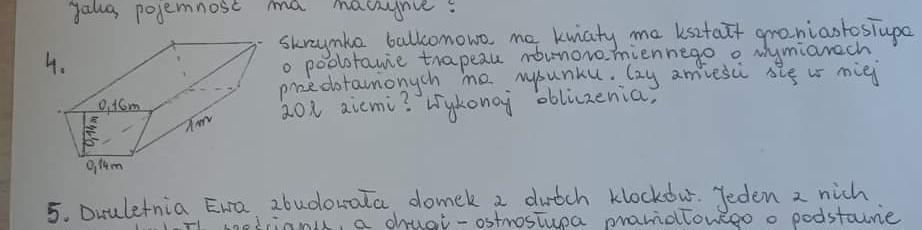 Jaką pojemność ma naczynie?
4.
Skrzynka balkonowa na kwiaty ma kształt graniastosłupa
o podstawie trapezu równoramiennego o wymiarach
przedstawionych na rysunku. Czy zmieści się w niej
20l ziemi? Wykonaj obliczenia.
0,16m
1m
0,14m
5. Dwuletnia Ewa zbudowała domek z dwóch klocków. Jeden z nich
a drugi - ostrosłupa prawidłowego o podstawie